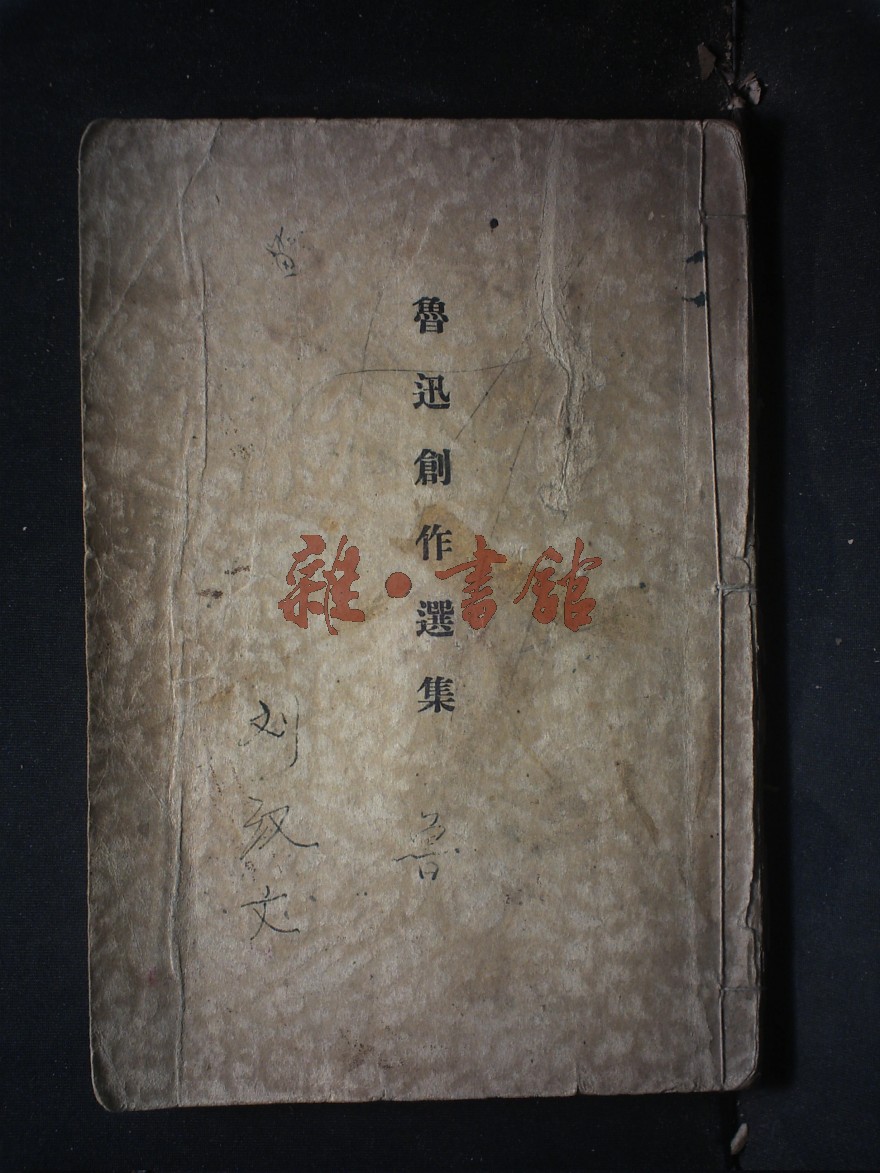 魯迅創作選集
雜·書館
刘汉文